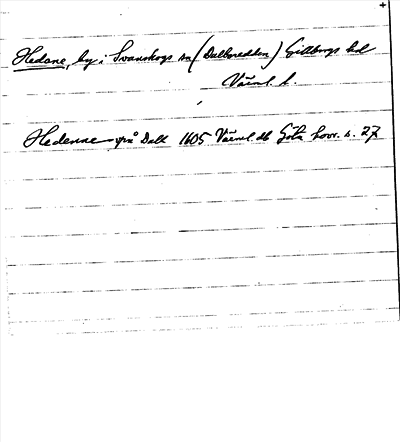 +
Hedane, by i Svanskogs sn (Dalboredden) Gillbergs hd
Värml. l.
Hedenne på Dall 1605 Värml. db Göta hovr. s. 27